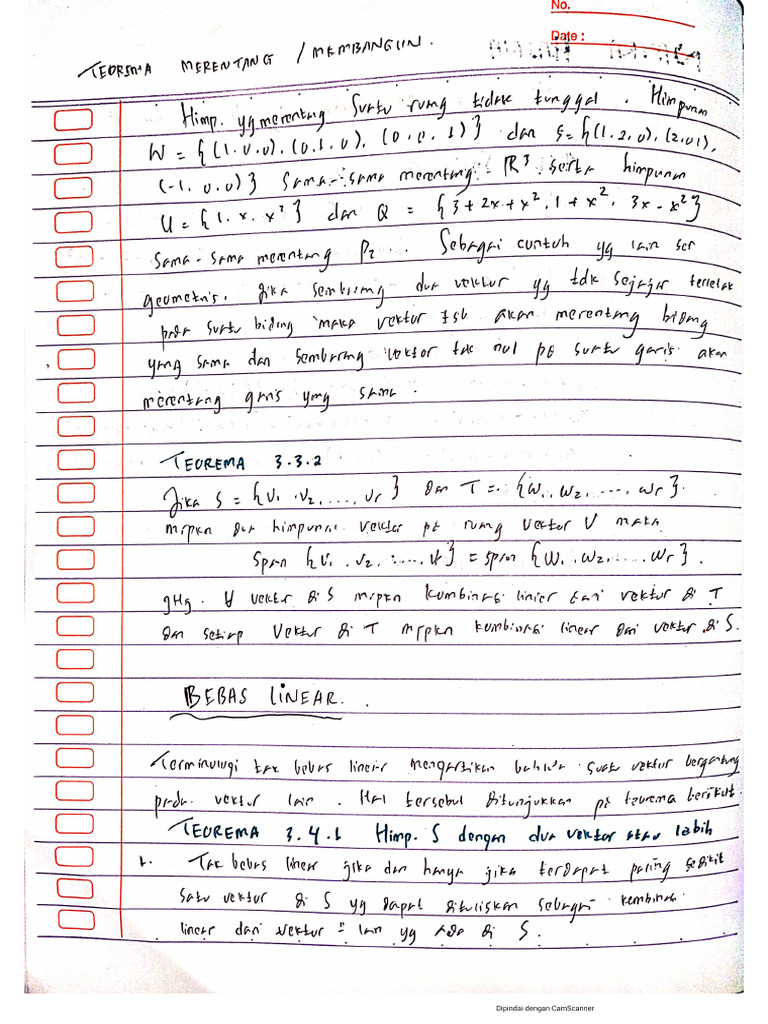 No.
Date :
TEOREMA MERENTANG / MEMBANGUN.
Himp. yg merentang suatu ruang tidak tunggal. Himpunan
W = {(1.0.0), (0.1.0), (0.0.1)} dan S = {(1.2.0), (2.0 1),
(-1, 0.0)} sama-sama merentang R³. serta himpunan
U = {1. x. x²} dan Q = {3 + 2x + x², 1 + x², 3x - x²}
sama-sama merentang P₂ . Sebagai contoh yg lain ser
geometris. Jika sembarang dua vektor yg tdk sejajar terletak
pada suatu bidang maka vektor tsb akan merentang bidang
yang sama dan sembarang vektor tak nol pd suatu garis akan
merentang garis yang sama.
TEOREMA 3.3.2
Jika S = {v₁, v₂, ...., vr} dan T = {w₁, w₂, ...., wr}.
mrpkn dua himpunan vektor pd ruang vektor V maka
Span {v₁, v₂, ...., vr} = span {w₁, w₂, .... wr}.
jHj. ∀ vektor di S mrpkn kombinasi linier dari vektor di T
dan setiap vektor di T mrpkn kombinasi linear dari vektor di S.
BEBAS LINEAR.
Terminologi tak bebas linear mengartikan bahwa suatu vektor bergantung
pada vektor lain. Hal tersebut ditunjukkan pd teorema berikut.
TEOREMA 3.4.1 Himp. S dengan dua vektor atau labih
1. Tak bebas linear jika dan hanya jika terdapat paling sedikit
satu vektor di S yg dapat dituliskan sebagai kombinasi
linear dari vektor = lain yg ada di S.
Dipindai dengan CamScanner